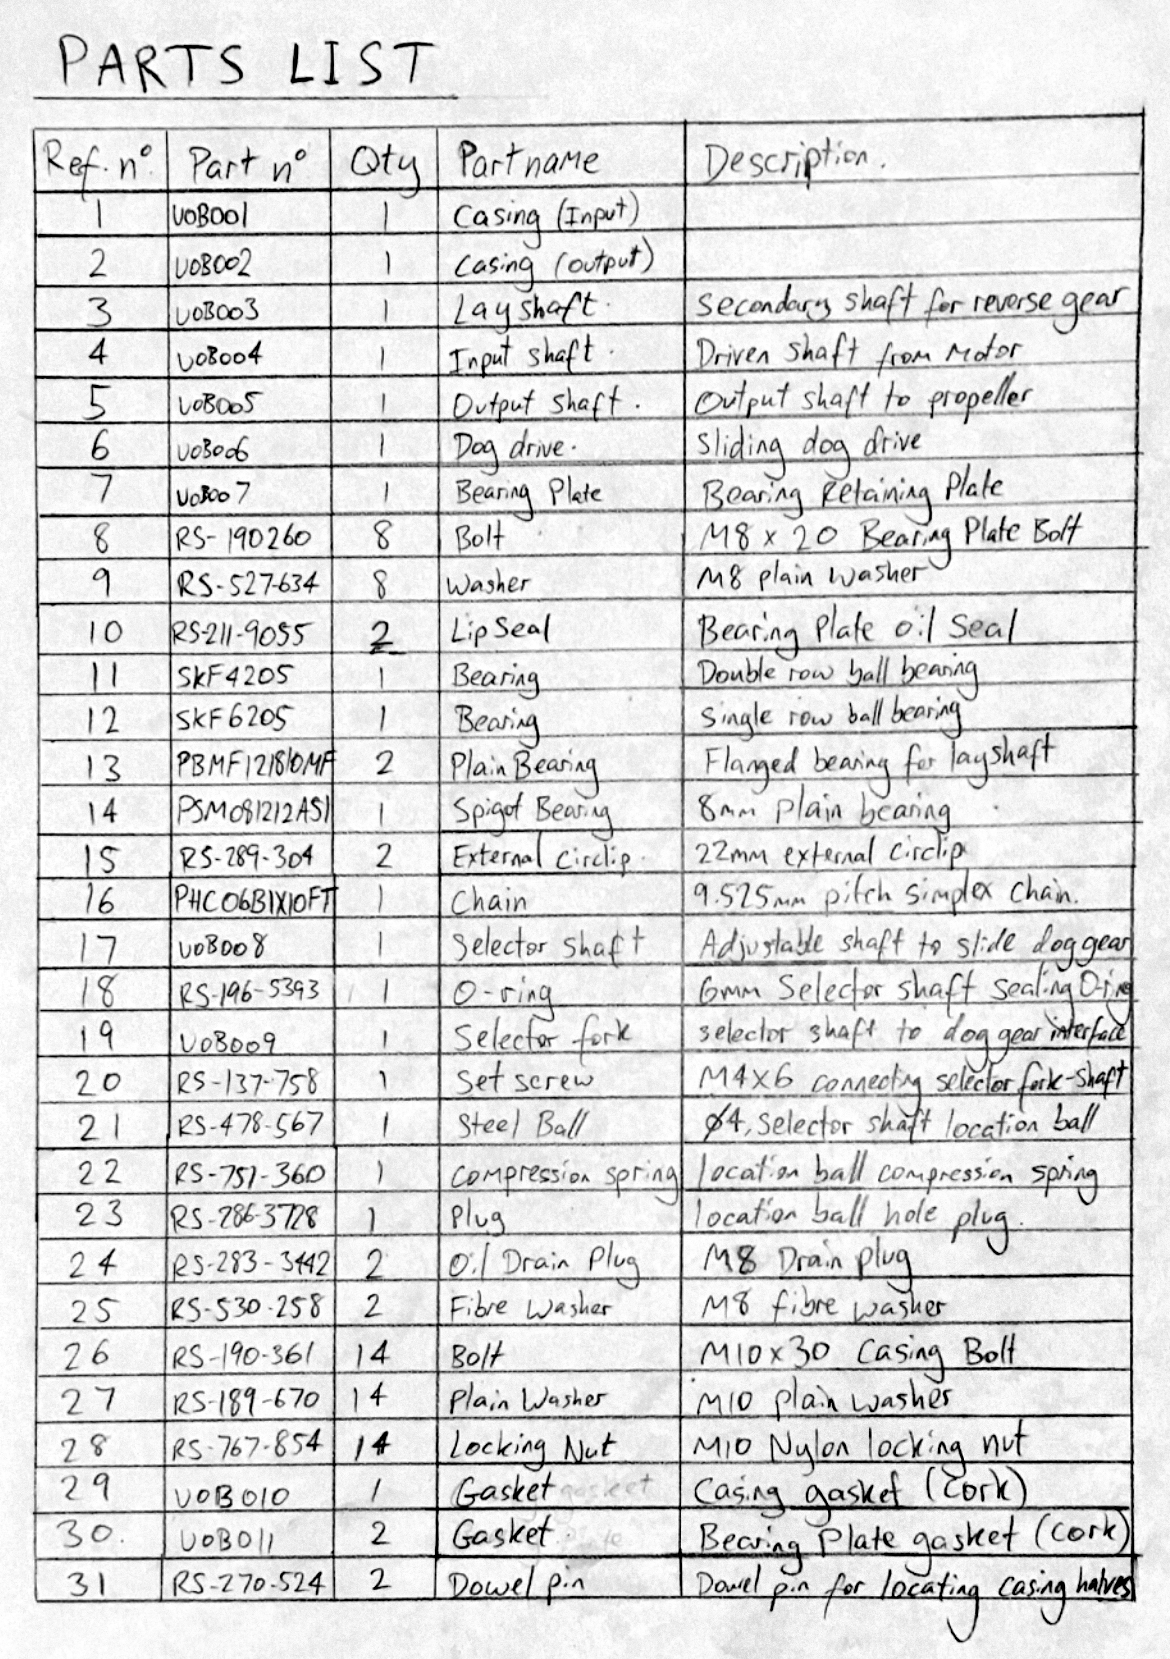 PARTS LIST
Ref. n° Part n° Qty Part name Description.
1 UOB001 1 Casing (Input)
2 UOB002 1 Casing (output)
3 UOB003 1 Layshaft. secondary shaft for reverse gear
4 UOB004 1 Input shaft. Driven shaft from Motor
5 UOB005 1 Output shaft. Output shaft to propeller
6 UOB006 1 Dog drive. Sliding dog drive
7 UOB007 1 Bearing Plate Bearing Retaining Plate
8 RS-190260 8 Bolt M8 x 20 Bearing Plate Bolt
9 RS-527-634 8 Washer M8 plain washer
10 RS-211-9055 2 Lip Seal Bearing Plate Oil Seal
11 SKF4205 1 Bearing Double row ball bearing
12 SKF6205 1 Bearing Single row ball bearing
13 PBMF121810MF 2 Plain Bearing Flanged bearing for layshaft
14 PSM081212AS1 1 Spigot Bearing 8mm plain bearing
15 RS-289-304 2 External circlip. 22mm external circlip
16 PHC06B1X10FT 1 Chain 9.525mm pitch simplex chain.
17 UOB008 1 Selector shaft Adjustable shaft to slide dog gear
18 RS-196-5393 1 O-ring 6mm Selector shaft sealing O-ring
19 UOB009 1 Selector fork selector shaft to dog gear interface
20 RS-137-758 1 Set screw M4x6 connecting selector fork-shaft
21 RS-478-567 1 Steel Ball Ø4, Selector shaft location ball
22 RS-751-360 1 compression spring location ball compression spring
23 RS-286-3728 1 Plug location ball hole plug.
24 RS-283-3442 2 Oil Drain Plug M8 Drain plug
25 RS-530-258 2 Fibre Washer M8 fibre washer
26 RS-190-361 14 Bolt M10x30 Casing Bolt
27 RS-189-670 14 Plain Washer M10 plain washer
28 RS-767-854 14 Locking Nut M10 Nylon locking nut
29 UOB010 1 Gasket Casing gasket (cork)
30. UOB011 2 Gasket Bearing Plate gasket (cork)
31 RS-270-524 2 Dowel pin Dowel pin for locating casing halves